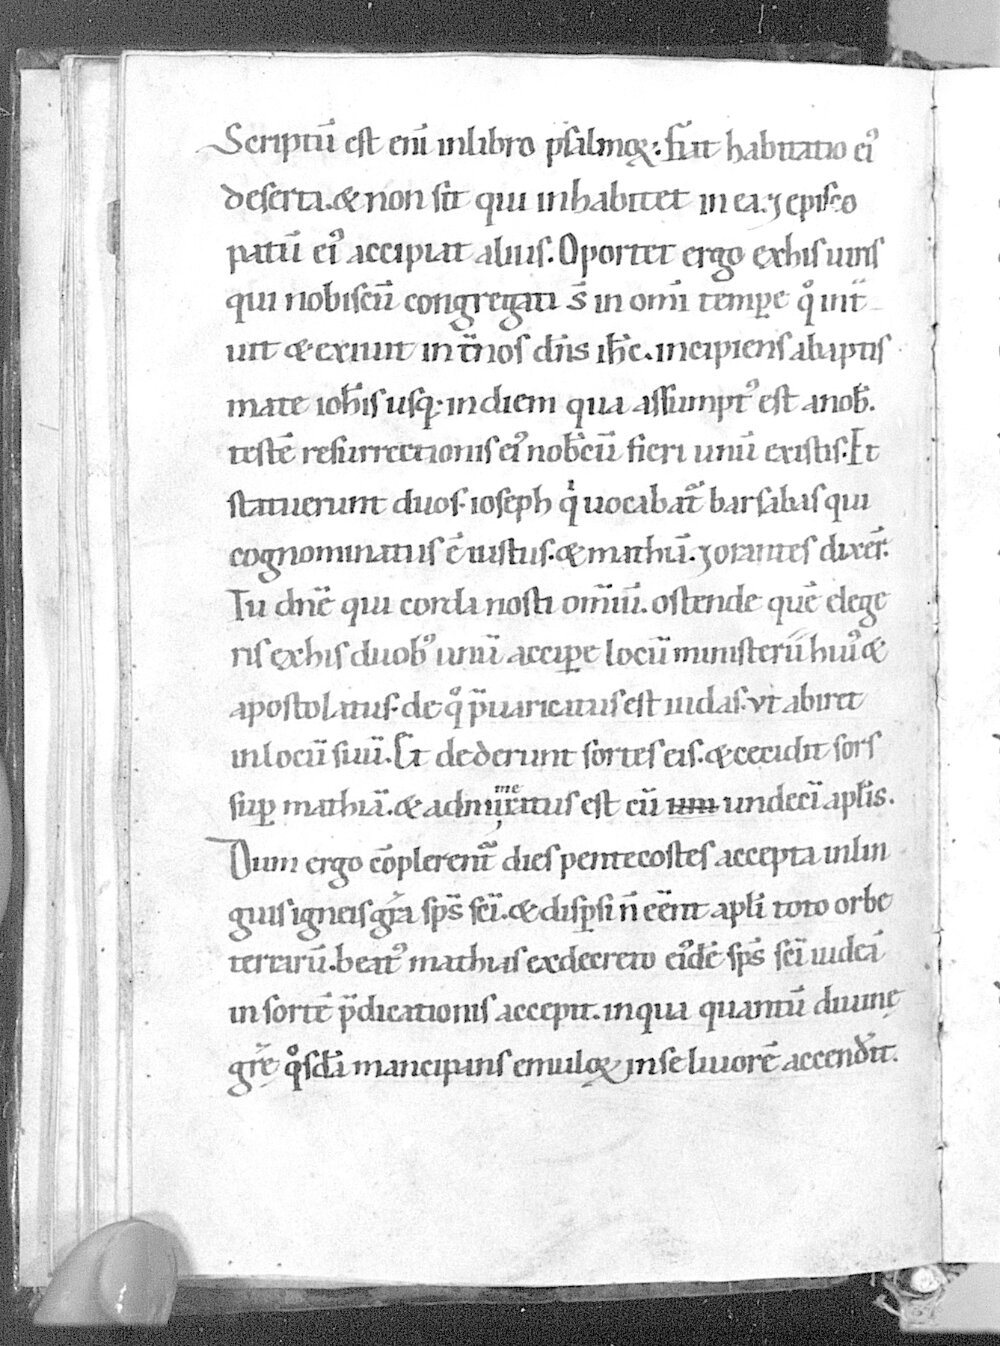 Scriptū est enī inlibro psalmoꝝ: fiat habitatio ei᾽
deserta. & non sit qui inhabitet in ea. ⁊ episco
patū ei᾽ accipiat alius. Oportet ergo exhis uiris
qui nobiscū congregati s̄ in omī tempꝑe qͦ int̄
uit & exiuit int̄nos dn̄s ih̄c. incipiens abaptis
mate ioh̄is usq; indiem qua assumpt᾽ est anob̄.
testē resurrectionis ei᾽ nob̄cū fieri unū existis. Et
statuerunt duos. ioseph qͥ uocabat̄ barsabas qui
cognominatus ē iustus. & mathiā. ⁊ orantes dixer̄.
Tu dn̄e qui corda nosti om̄iū. ostende quē elege
ris exhis duob᾽ unū accipꝑe locū ministerii hui᾽ &
apostolatus. de qͦ p̄uaricatus est iudas. ut abiret
inlocū suū. Et dederunt sortes eis. & cecidit sors
suꝑ mathiā. & adnumeratus est cū undecī apl̄is.
Dum ergo cōplerent̄ dies pentecostes accepta inlin
guis igneis gr̄a sp̄s sc̄i. & disꝑsi n̄ eēnt apl̄i toto orbe
terrarū. beat᾽ mathias exdecreto ei᾽dē sp̄s sc̄i iudeā
in sortē p̄dicationis accepit. inqua quantū diuinę
gr̄ę qͦsdā mancipans emuloꝝ inse liuorē accendit̄.